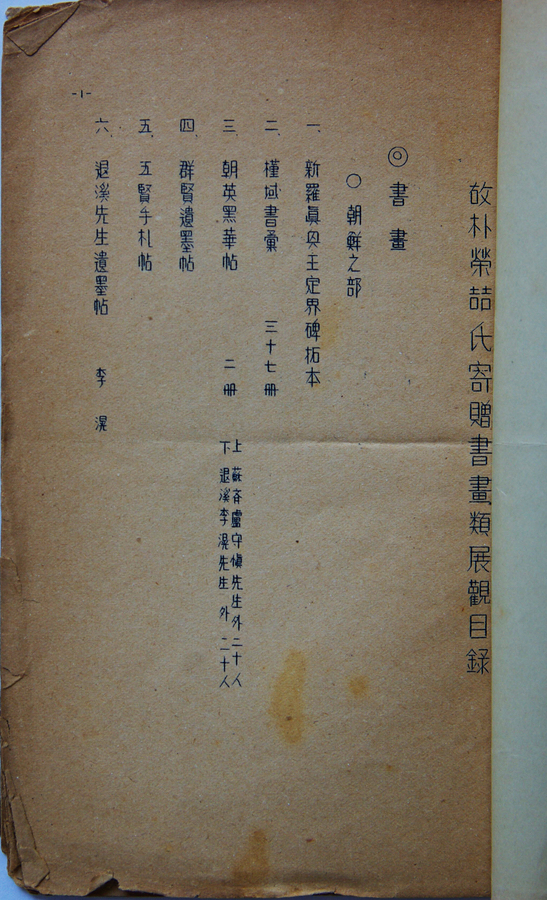 故朴榮喆氏寄贈書畫類展觀目錄
◎書畫
○朝鮮之部
一、新羅眞興王定界碑拓本
二、槿域書彙 三十七冊
三、朝英黑華帖 二冊
上 蘇斉盧守愼先生外二十人
下 退溪李滉先生外二十人
四、群賢遺墨帖
五、五賢手札帖
六、退溪先生遺墨帖 李滉
-1-